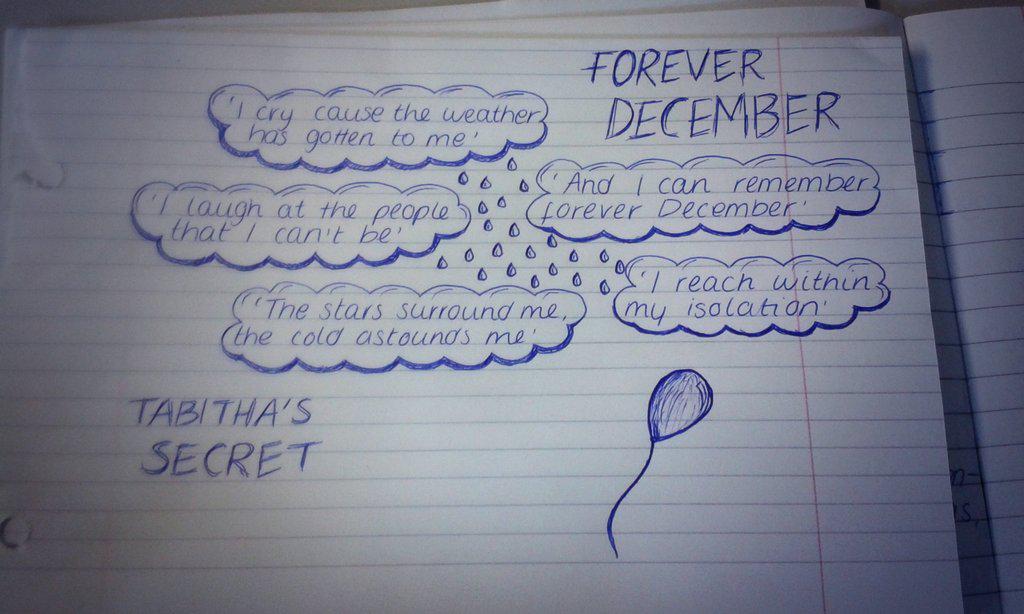 FOREVER
DECEMBER
'I cry cause the weather
has gotten to me'
'And I can remember
forever December'
'I laugh at the people
that I can't be'
'I reach within
my isolation'
'The stars surround me,
the cold astounds me'
TABITHA'S
SECRET